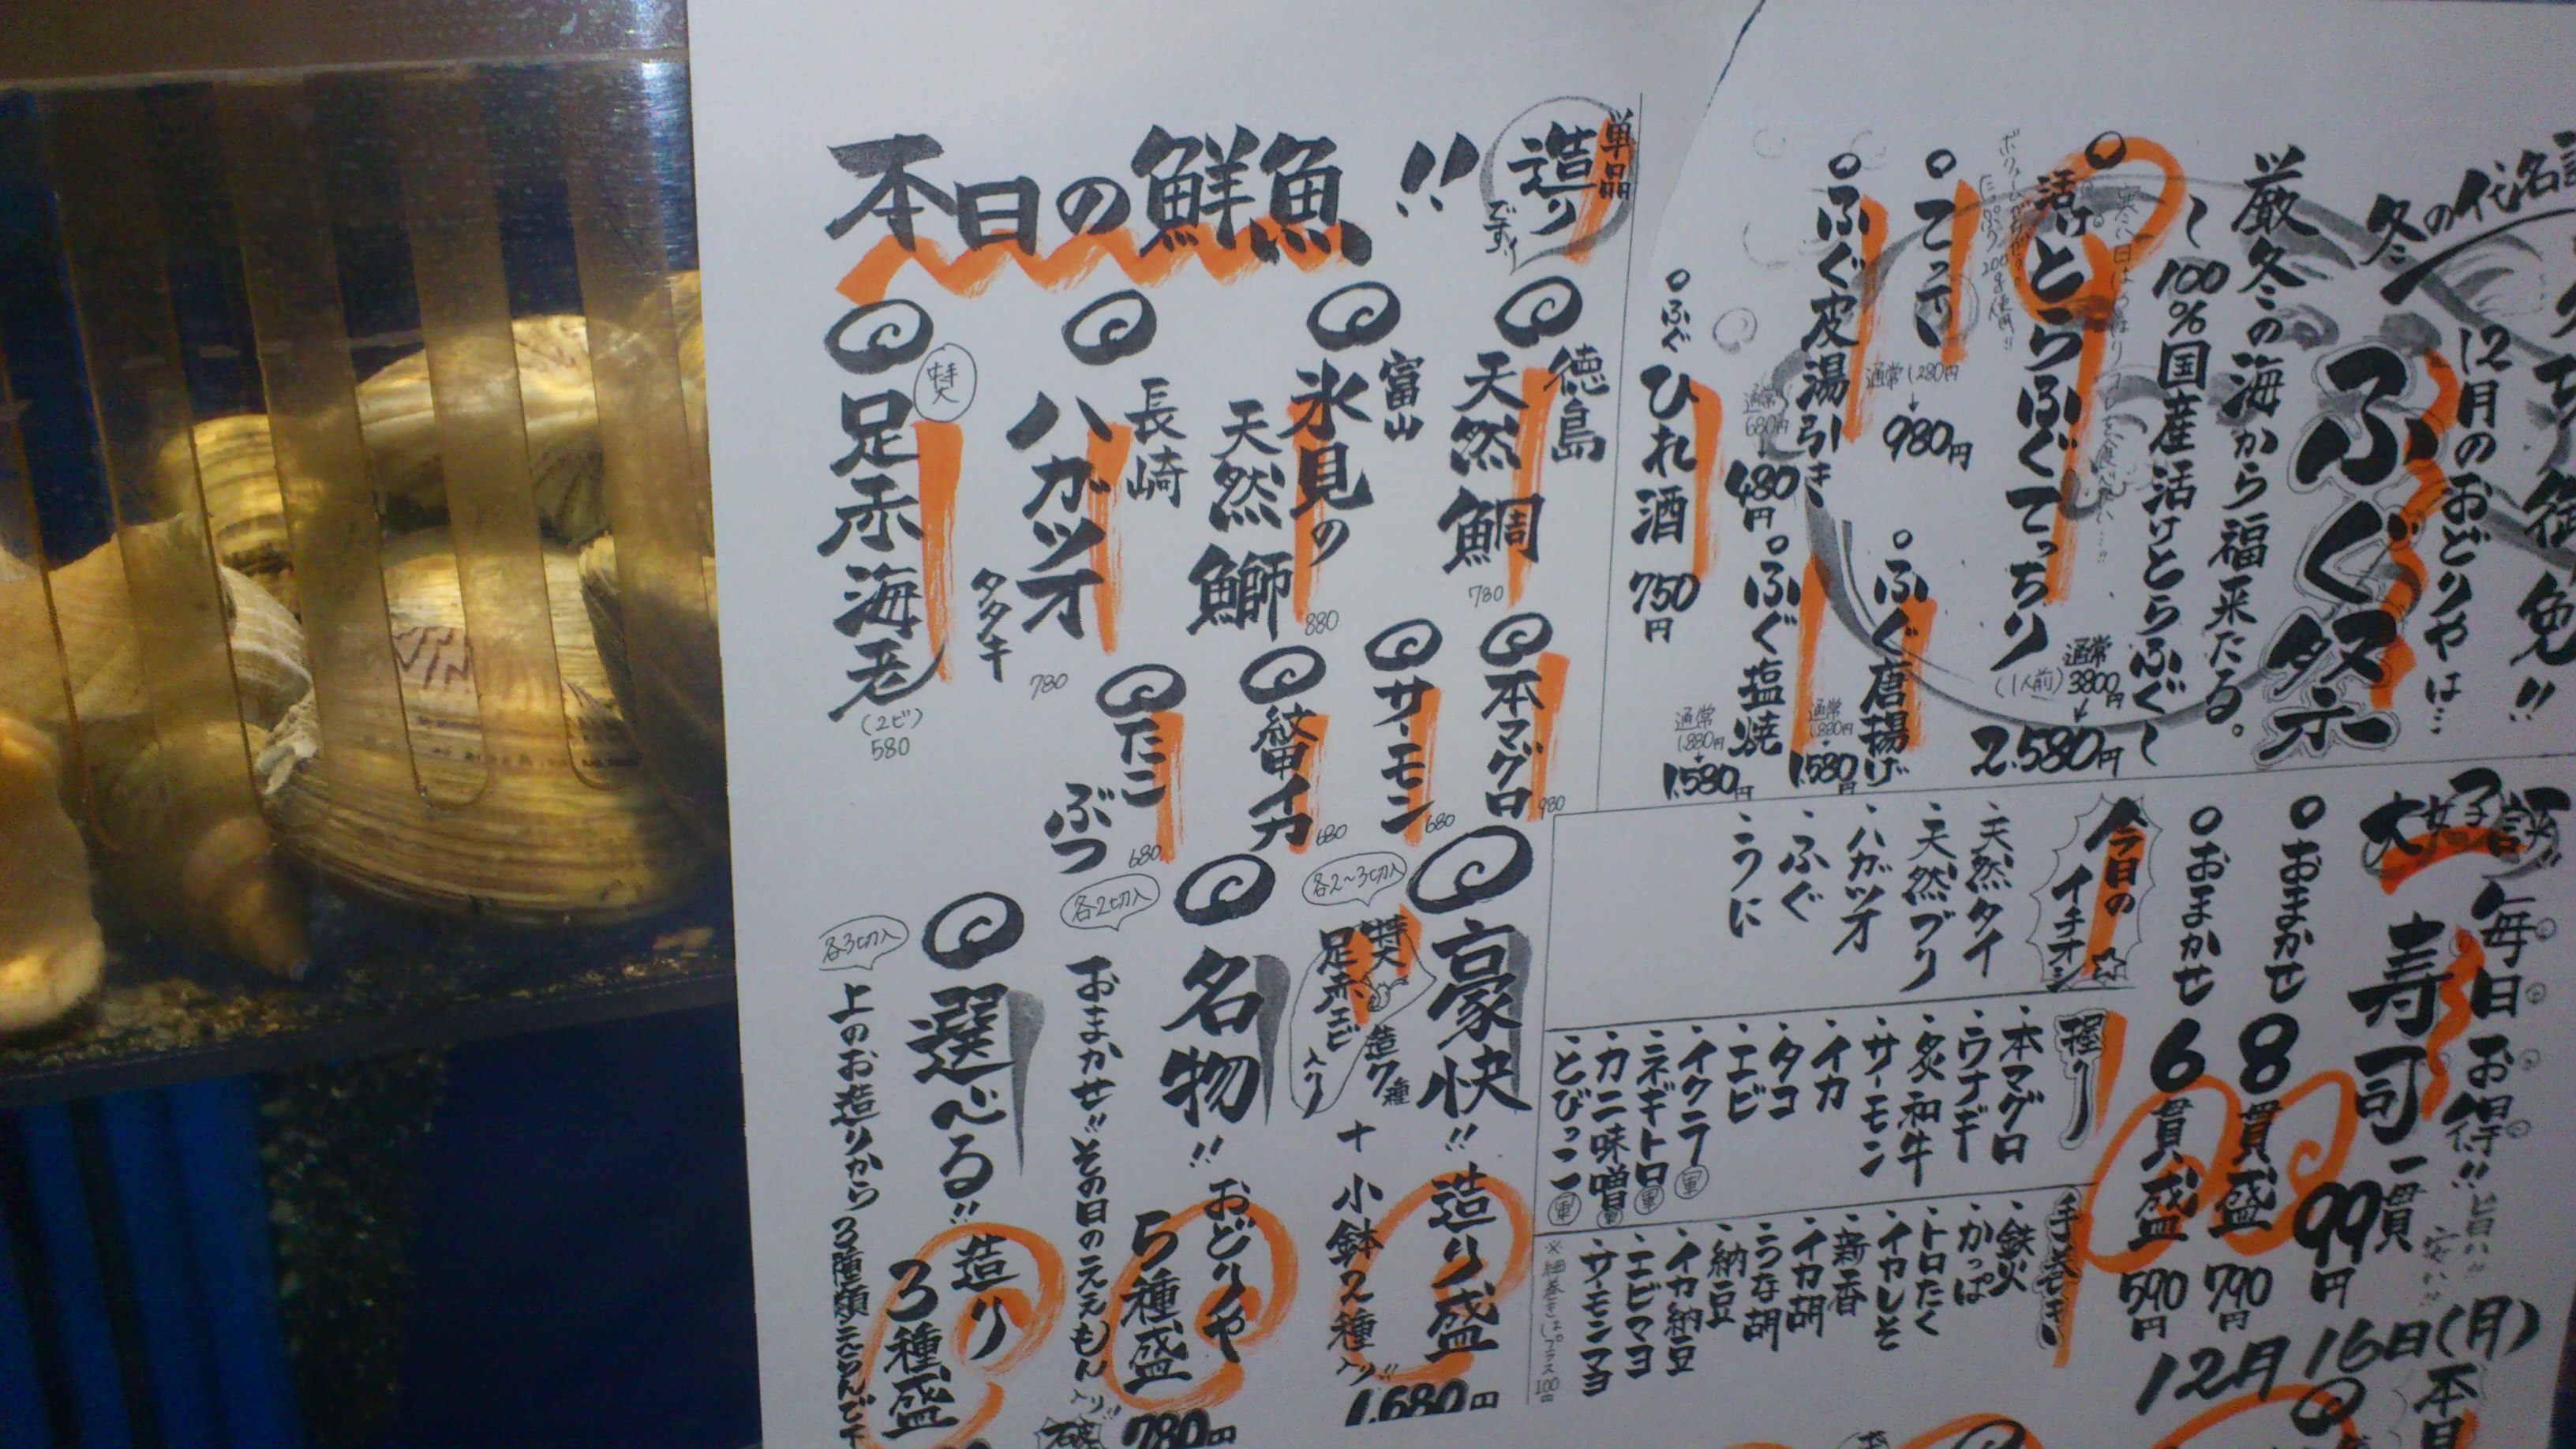 冬の代名詞
12月のおどりやは…
ふぐ祭
厳冬の海から福来たる。
〜100%国産活けとらふぐ〜
活けとらふぐてっちり
(1人前)
通常3800円
↓
2,580円
てっさ
通常1,280円
↓
980円
ふぐ唐揚げ
通常1,880円
1,580円
ふぐ皮湯引き
通常680円
↓
480円
ふぐ塩焼
通常1,880円
1,580円
ふぐひれ酒 750円
本日の鮮魚!!
単品
造り
でずぃ
徳島
天然鯛
780
富山
氷見の
天然鰤
880
長崎
ハガツオ
タタキ
780
特大
足赤海老
(2ビ)
580
本マグロ
980
サーモン
680
紋甲イカ
680
たこ
ぶつ
680
豪快!! 造り盛
各2〜3切入
特大
足赤エビ
入り
造り7種
+小鉢2種入り!!
1,680円
名物!! おどりや
5種盛
各2切入
おまかせ!!その日のええもん入り!!
780円
選べる!! 造り
3種盛
各3切入
上のお造りから3種類えらんで下
大好評!!
毎日お得!!
旨い!!
安い!!
寿司一貫
99円
おまかせ8貫盛
790円
おまかせ6貫盛
590円
今日の
イチオシ
・天然タイ
・天然ブリ
・ハガツオ
・ふぐ
・うに
握り
・本マグロ
・ウナギ
・炙和牛
・サーモン
・イカ
・タコ
・エビ
・イクラ 軍
・ネギトロ 軍
・カニ味噌 軍
・とびっこ 軍
手巻き
・鉄火
・かっぱ
・トロたく
・イカしそ
・新香
・イカ胡
・うな胡
・納豆
・イカ納豆
・エビマヨ
・サーモンマヨ
※細巻きはプラス100円
12月16日(月)
本日